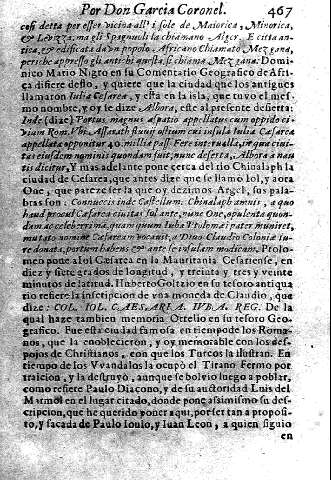 Por Don Garcia Coronel. 467
cosi detta per esser vicina all'isole de Maiorica, Minorica,
et Levizza: ma gli Spagnuoli la chiamano Alger. E citta antica,
et edificata da vn popolo Africano Chiamato Mezgana,
perche appresso gli antichi questa, è chiama Mezgana. Domi-
nico Mario Nigro en su Comentario Geografico de Afri-
ca difiere desto, y quiere que la ciudad que los antiguos
llamaron Iulia Cesarea, y està en la isla, que tuvo el mes-
mo nombre, y oy le dize Albora, estè al presente desierta:
Inde (dize) Portus magnus astuatio appellatus cum oppido ci-
vium Rom. Vbi Assarath fluvij ostium cui insula Iulia Cæsarea
appellata opponitur 40. millia pass. Fere intervalla, in qua civi-
tas eiusdem nominis quondam fuit, nunc deserta, Albora a nau
tis dicitur, Y mas adelante pone cerca del rio Chinalaph la
ciudad de Cesarea, que antes dize que se llamò Iol, y aora
One, que parece ser la que oy dezimos Argel, sus pala-
bras son: Connuccis inde Castellum. Chinalaph amnis, a quo
haud procul Cæsarea civitas Iol ante, nunc One, opulenta quon-
dam ac celeberrima, quam quum Iuba Ptolomæi pater muniret,
mutato nomine Cæsaream vocavit, a Divo Claudio Coloniæ iu-
re donata, portum habens et ante se insulam modicam. Ptolo-
meo pone a Iol Cæsarea en la Mauritania Cesariense, en
diez y siete grados de longitud, y treinta y tres y veinte
minutos de latitud. Huberto Goltzio en su tesoro antiqua
rio refiere la inscripcion de vna moneda de Claudio, que
dize: COL. IOL. CAES. ART. IVBA. REG. De la
qual haze tambien memoria Ortelio en su tesoro Geo-
grafico. Fue esta ciudad famosa en tiempo de los Roma-
nos, que la enoblecieron, y oy memorable con los des-
pojos de Christianos, con que los Turcos la ilustran. En
tiempo de los Vvandalos la ocupò el Titano Fermo por
traicion, y la destruyò, aunque se bolvio luego a poblar,
como refiere Paulo Diacono, y de su autoridad Luis del
Marmol en el lugar citado, donde pone assimismo su des-
cripcion, que he querido poner aqui, por ser tan a proposi-
to, y casi sacada de Paulo Iouio, y Iuan Leon, a quien siguio
en